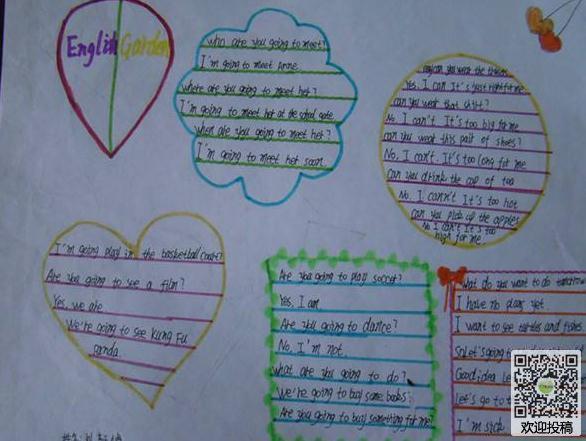 English Garden
who are you going to meet?
I'm going to meet Anne
where are you going to meet her?
I'm going to meet her at the school gate
when are you going to meet her?
I'm going to meet her soon
can you wear the
Yes, I can It's just right for me
can you wear that shirt?
No I can't. It's too big for me
can you wear this pair of shoes?
No, I can't. It's too long for me
Can you drink the cup of tea
No. I cann't It's too hot
can you pick up the apples
No I can't It's too
high for me
I'm going play in the basketball court?
Are you going to see a film?
Yes, we are
We're going to see Kung Fu
panda.
Are you going to play soccer?
Yes, I am
Are you going to dance?
No, I'm not.
what are you going to do?
We're going to buy some books.
Are you going to buy something for me?
What do you want to do tomorrow
I have no plans yet.
I want to see turtles and fishes.
So Let's going
Good idea Le
Let's go to t
I'm sick
欢迎投稿